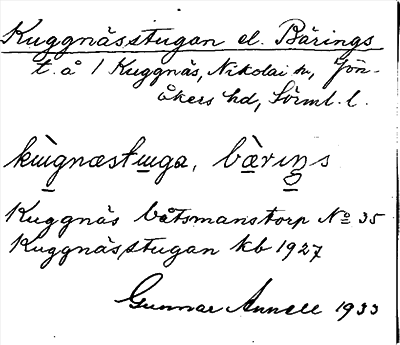 Kuggnässtugan el. Bärings
t. å 1 Kuggnäs, Nikolai sn, Jön-
åkers hd, Sörml. l.
kɯ̀gnæstɯga, bæ̀riŋs
Kuggnäs båtsmanstorp No 35
Kuggnässtugan kb 1927
Gunnar Annell 1933